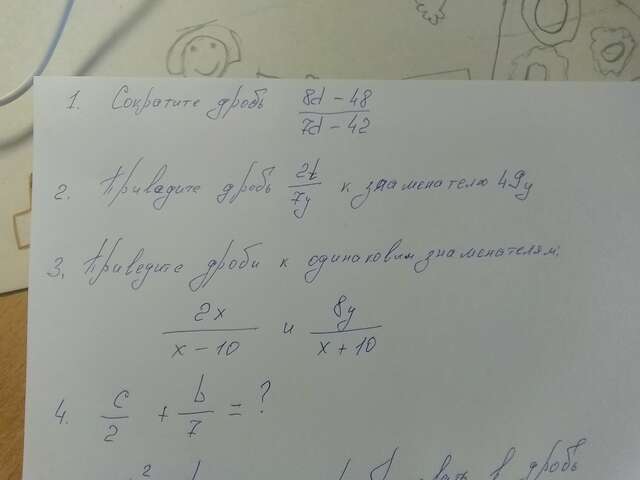 1. Сократите дробь 8d - 48 / 7d - 42
2. Приведите дробь 2t / 7y к знаменателю 49y
3. Приведите дроби к одинаковым знаменателям:
2x / x - 10 и 8y / x + 10
4. c / 2 + b / 7 = ?
в дробь